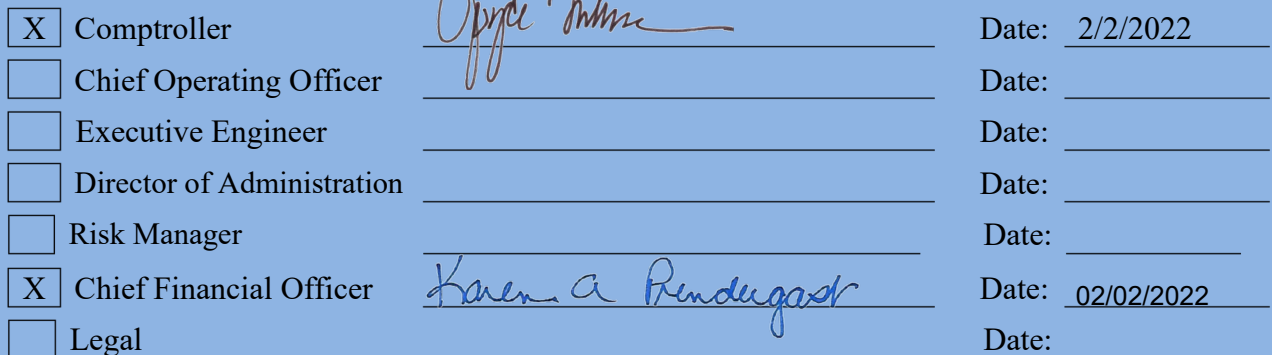 X Comptroller Date: 2/2/2022
Chief Operating Officer Date:
Executive Engineer Date:
Director of Administration Date:
Risk Manager Date:
X Chief Financial Officer Karen A Prendergast Date: 02/02/2022
Legal Date: